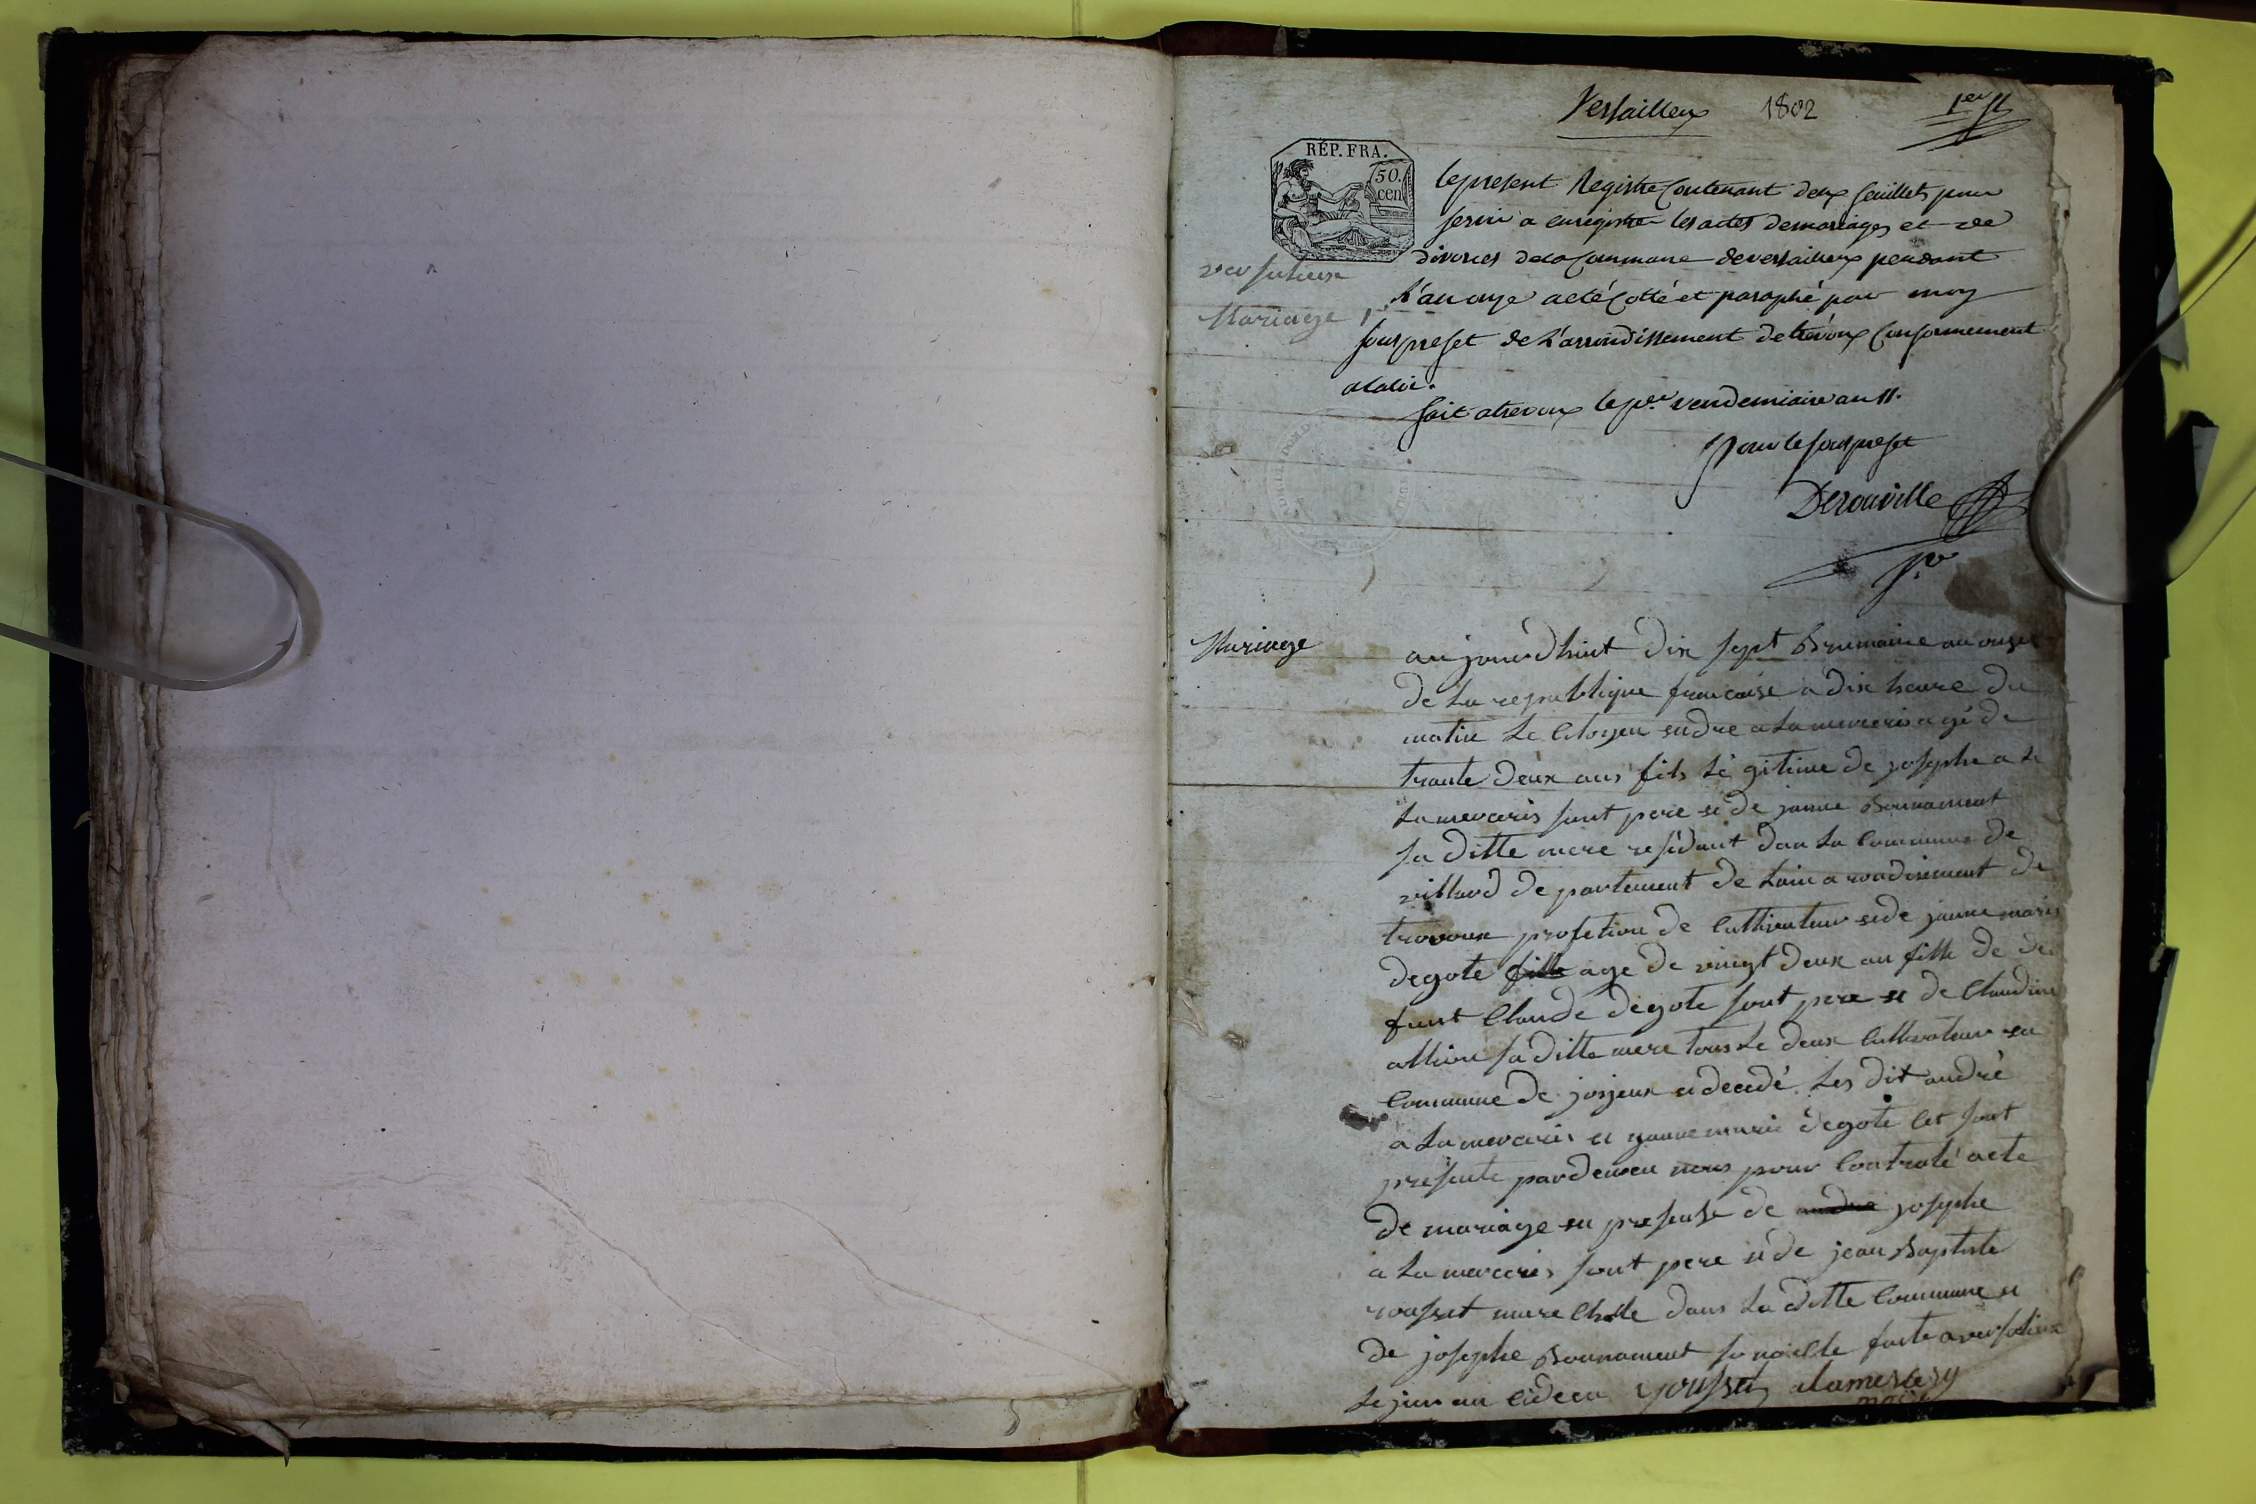 Versailleux 1802 1er ff
RÉP. FRA.
50.
cen
le present Registre Contenant deux feuillets pour
servir a enregistrer les actes de mariages et de
divorces de la Commune de versailleux pendant
versulieux
L'an onze acté Cotté et paraphé par moy
Mariage
sous prefet de L'arrondissement de trévoux Conformement
a la loi.
fait a trevoux le per. vendemiaire an 11.
Pour le sous prefet
Derouville
Mariage
aujourdhuit dix sept Brumaire an onze
de La republique francaise a dix heure du
matin Le Citoyen endre a La merceris agé de
trante deux ans fils Lé gitime de josephe a La
La merceris sont pere et de janne Bonnament
sa ditte mere résidant dan La Commune de
villard de partement de Lain a rondisement de
trovoux profetion de Cultivateur et de janne marie
degote fille age de vingt deux an fille de de
funt Claude degote sont pere et de Claudine
allion sa ditte mere tous Le deux Cultivateur en
Commune de joyeux et decedé. Les dit andré
a La merceris et janne marie degote Cet sont
presente pardeven nous pour Contraté acte
de mariage en presense de andre josephe
a La merceris sont pere et de jean Baptiste
rousset mare Challe dans La ditte Commune et
de josephe Bonnament fait a versalieux
Le jour an Cidesu rousset alamercery
maire